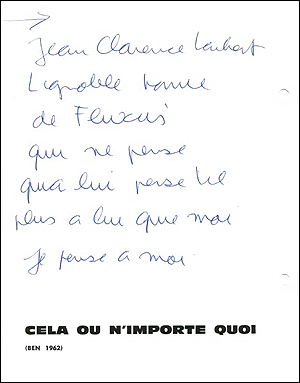 Jean Clarence Lambert
L'ignoble
de Fluxus
qui ne pense
qua lui pense til
plus a lui que moi
je pense a moi
CELA OU N'IMPORTE QUOI
(BEN 1962)